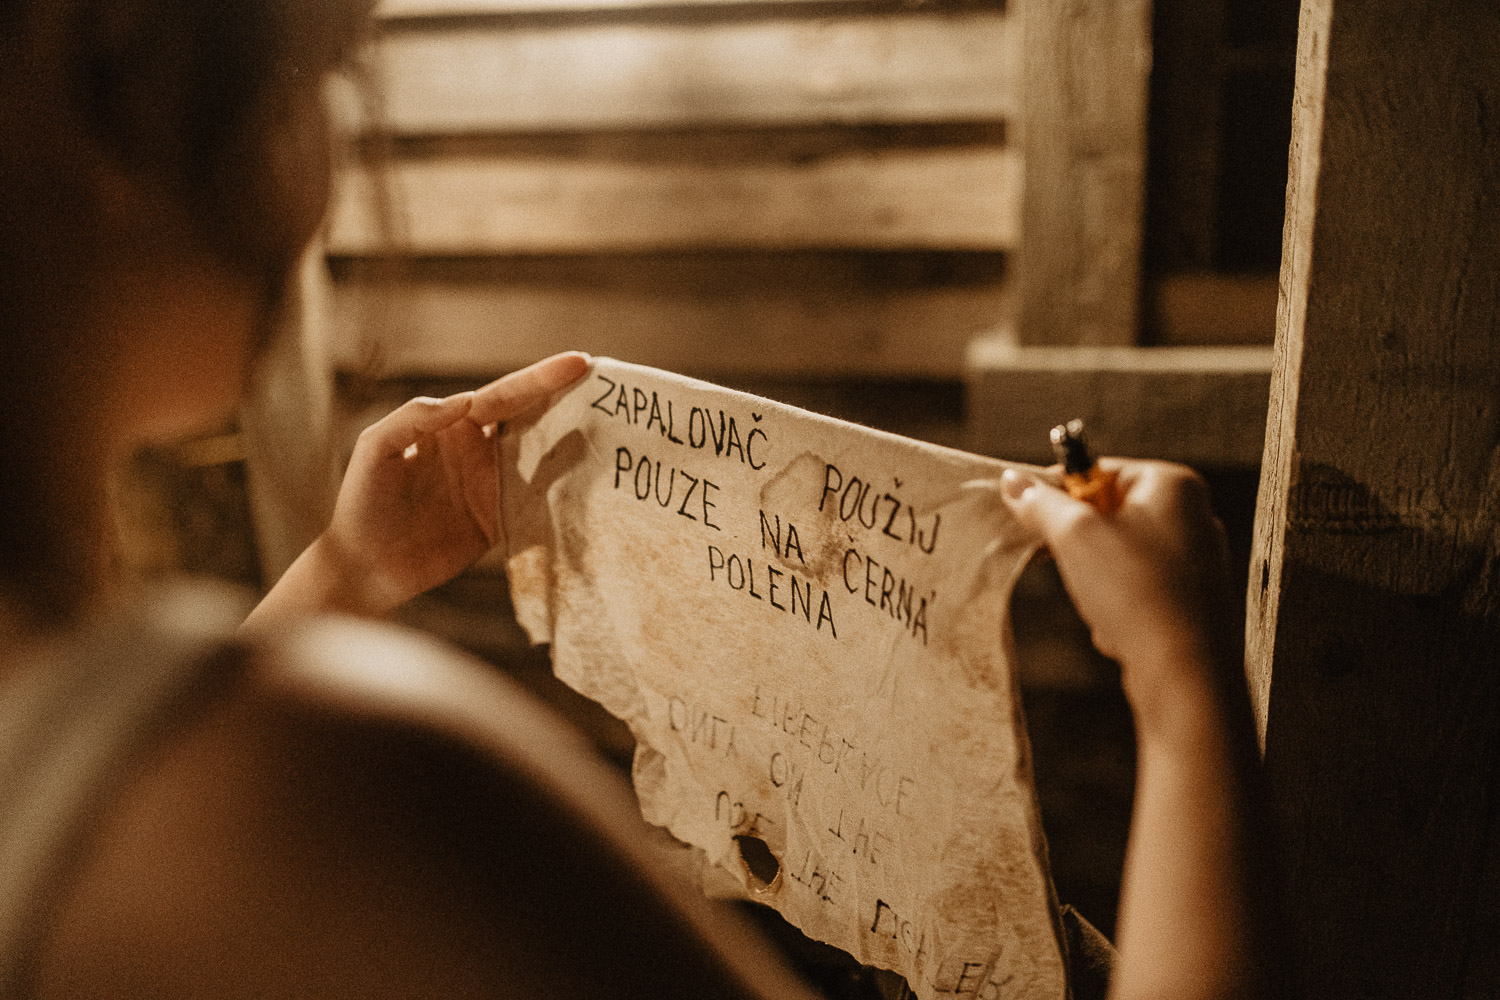 ZAPALOVAČ POUŽIJ
POUZE NA ČERNÁ
POLENA
FIREPLACE
ONLY ON THE
USE THE LIGHTER